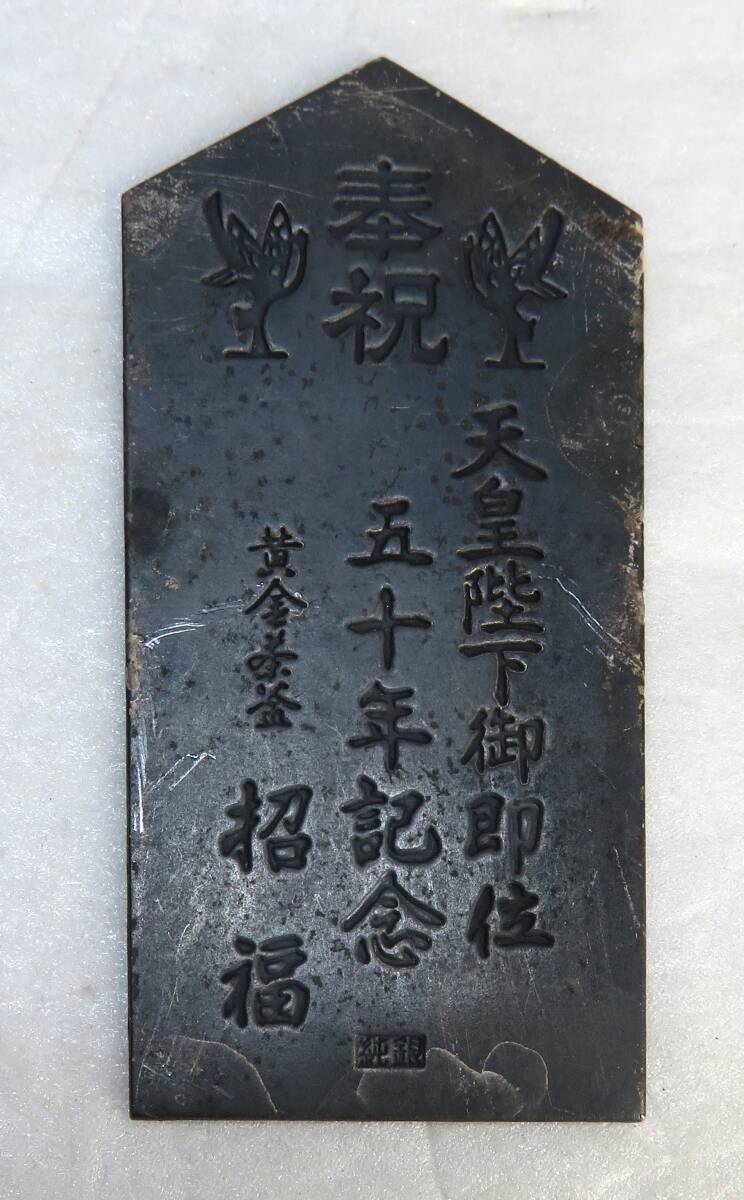 奉祝
天皇陛下御即位
五十年記念
黄金茶釜
招福
純銀